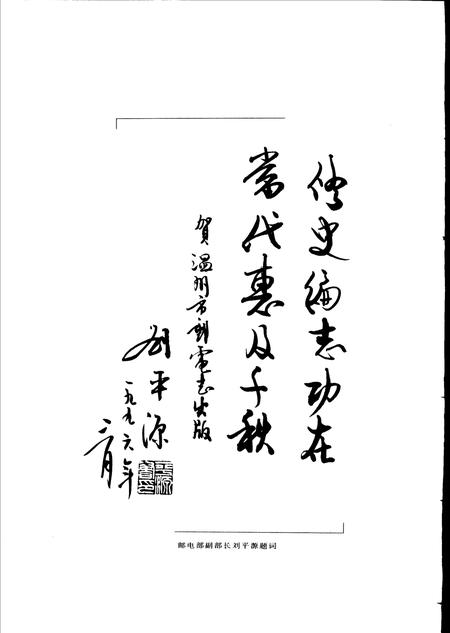 修史编志功在
当代惠及千秋
贺温州市邮电志出版
刘平源
一九九六年
二月
邮电部副部长刘平源题词